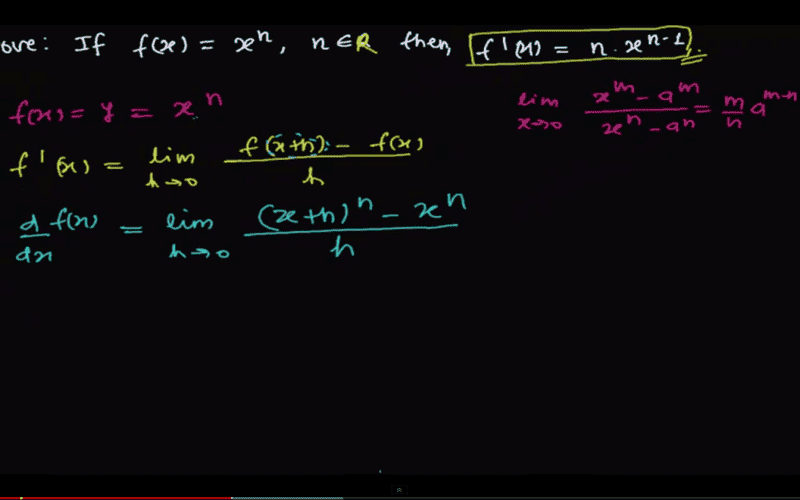 ove: If f(x) = xⁿ, n ∈ R then, f'(x) = n . xⁿ⁻¹.
f(x) = y = xⁿ
lim x→0 (xᵐ - aᵐ)/(xⁿ - aⁿ) = m/n aᵐ⁻ⁿ
f'(x) = lim h→0 (f(x+h) - f(x))/h
d/dx f(x) = lim h→0 ((x+h)ⁿ - xⁿ)/h